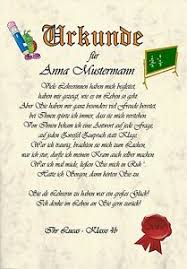 Urkunde
für
Anna Mustermann
Viele Lehrerinnen haben mich begleitet,
haben mir gezeigt, wie es im Leben so geht.
Aber Sie haben mir ganz besonders viel Freude bereitet,
bei Ihnen spürte ich immer, dass sie mich verstehen
Von Ihnen bekam ich eine Antwort auf jede Frage,
auf jeden Zweifel Zuspruch statt Klage.
War ich traurig, brachten Sie mich zum Lachen,
war ich zu, durfte ich meinen Kram machen,
war ich leise, ließen Sie mich in Ruh
Und hatte ich den Sinn verloren, dann hörten Sie zu.
Sie als Lehrerin zu haben war ein großes Glück!
Ich denke im Leben an Sie gern zurück.
Ihr Lucas - Klasse 4b